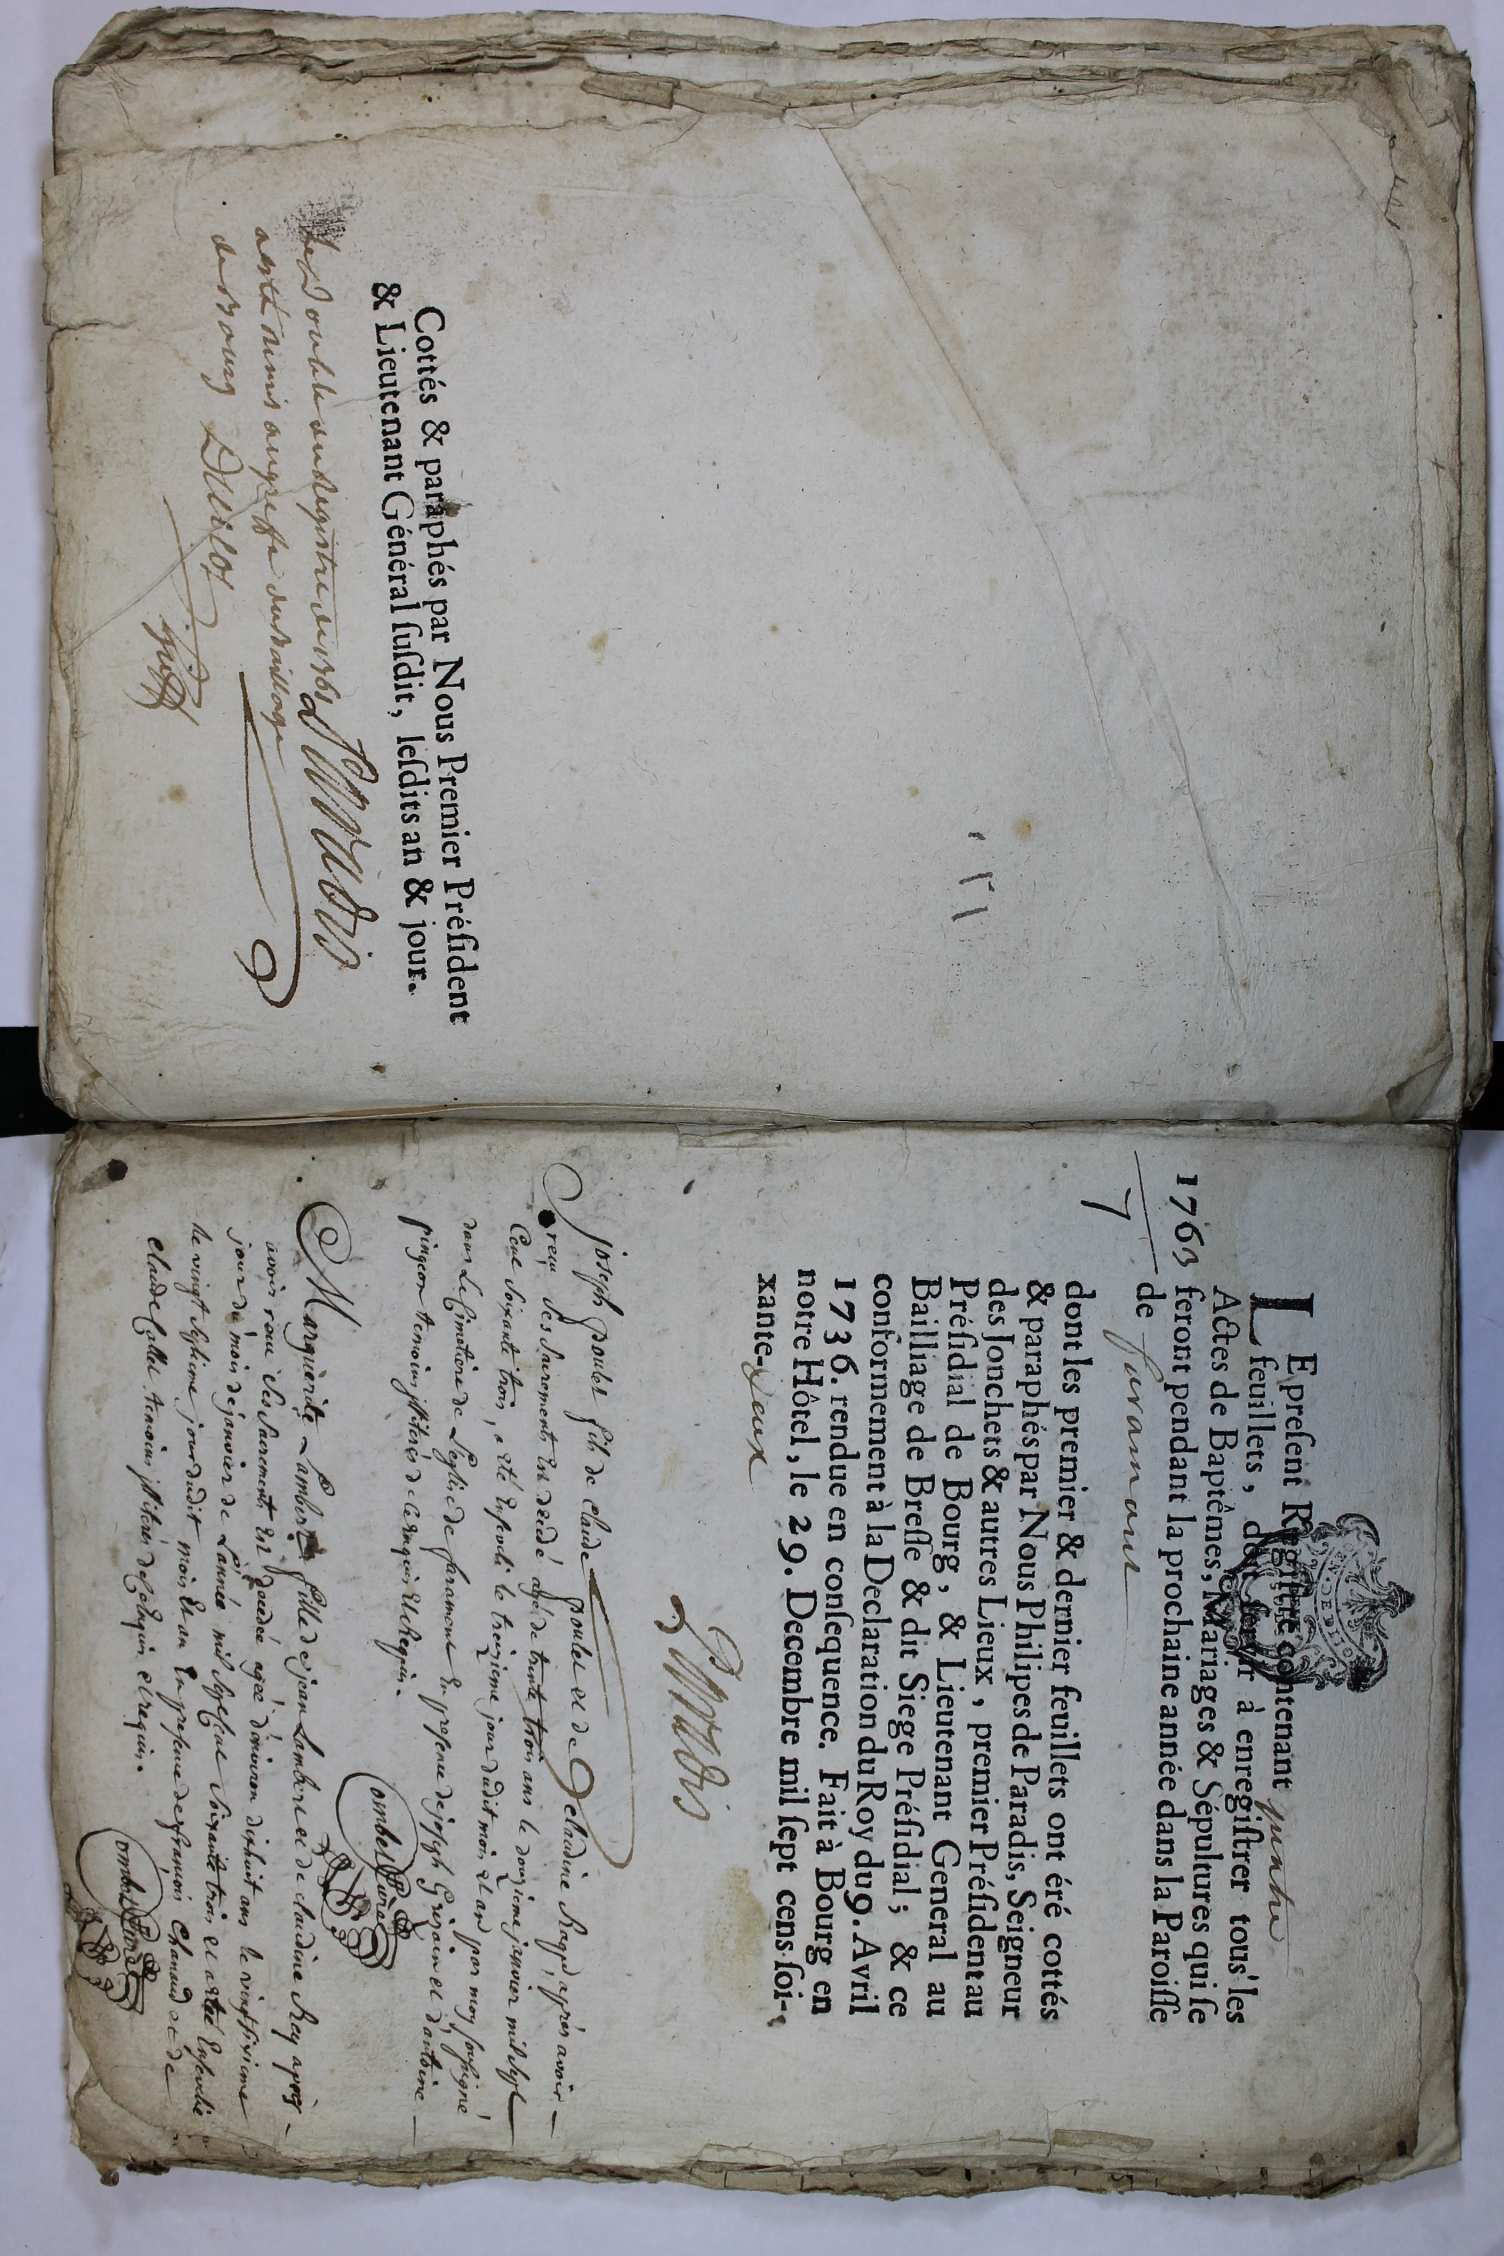 Cottés & paraphés par Nous Premier Préſident
& Lieutenant Général ſuſdit, leſdits an & jour.
Le Double du Registre de 1761
a esté remis au greffe du Bailliage
de Bourg
Paradis
LE preſent Regiſtre contenant
feuillets, doit ſervir à enregiſtrer tous les
Actes de Baptêmes, Mariages & Sépultures qui ſe
1763 feront pendant la prochaine année dans la Paroiſſe
de faramans
dont les premier & dernier feuillets ont éré cottés
& paraphés par Nous Philipes de Paradis, Seigneur
des Jonchets & autres Lieux, premier Préſident au
Préſidial de Bourg, & Lieutenant General au
Bailliage de Breſſe & dit Siege Préſidial; & ce
conformement à la Declaration du Roy du 9. Avril
1736. rendue en conſequence. Fait à Bourg en
notre Hôtel, le 29. Decembre mil ſept cens ſoi-
xante-deux
Paradis
joseph poulet fils de claude poulet et de claudine Rey après avoir
reçu ses sacrements est decédé agé de trente trois ans le douzieme janvier mil sept
Cent soixante trois, a été Enseveli le treizieme jour dudit mois et an par moy soussigné
dans le Cimetiere de L'eglise de faramans En presence de joseph et d'antoine
pingeon temoins illiterés de Ce enquis et Requis.
Marguerite Lambert fille de jean Lambert et de claudine Rey après
avoir reçu ses sacrements est decedée agée d'environ dixhuit ans le vingt sixieme
jour du mois de janvier de L'année mil sept cent soixante trois et a eté Ensevelie
le vingt septieme jour dudit mois et an En presence de francois chanaud et de
claude Callet temoins illiterés de Ce enquis et requis.